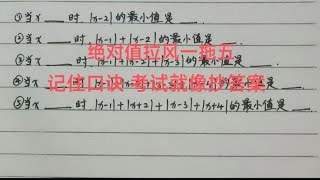 ①当x ___ 时, |x-2|的最小值是 ___.
②当x ___ 时, |x-1|+|x-2|的最小值是 ___.
③当x ___ 时, |x-1|+|x-2|+|x-3|的最小值是 ___.
绝对值拉风一拖五
④当x ___ 时, 的最小值是 ___.
记住口诀 考试就像抄答案
⑤当x ___ 时, |x-1|+|x+2|+|x-3|+|x+4|的最小值是 ___.